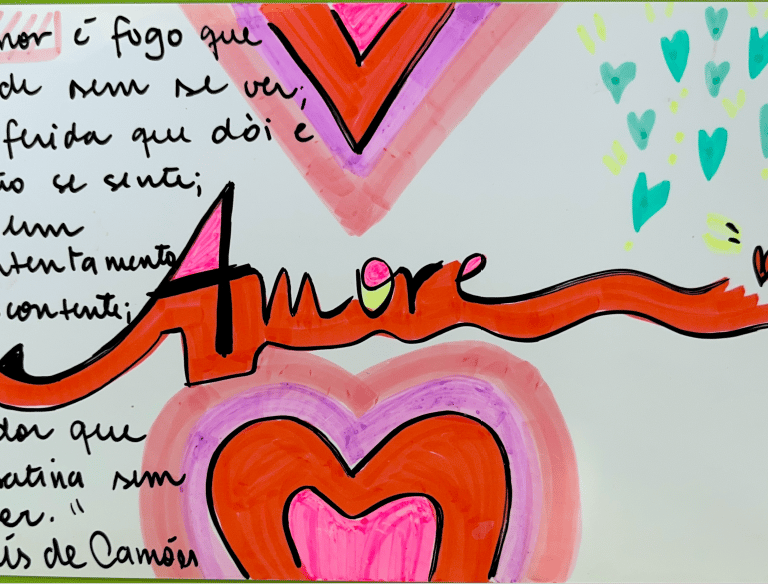 mor é fogo que
de sem se ver;
ferida que dói e
ão se sente;
um
ntentamento
contente;
Amore
dor que
satina sem
er."
ís de Camões